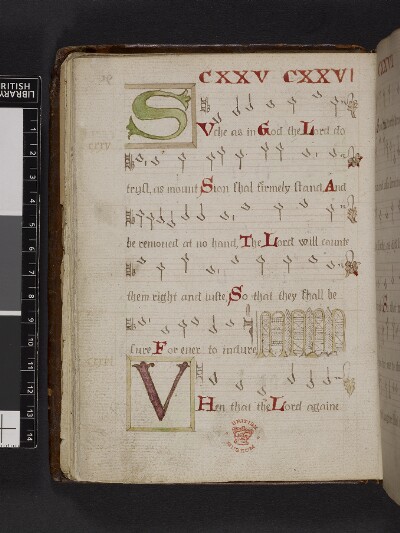 CXXV CXXVI
S Vche as in God the Lord do
trust, as mount Sion shal firmely stand, And
be remoued at no hand, The Lord will counte
them right and iuste, So that they shall be
sure For euer to indure
V Hen that the Lord againe
BRITISH
MUSEUM
BRITISH
LIBRARY
1
2
3
4
5
6
7
8
9
10
11
12
13
14